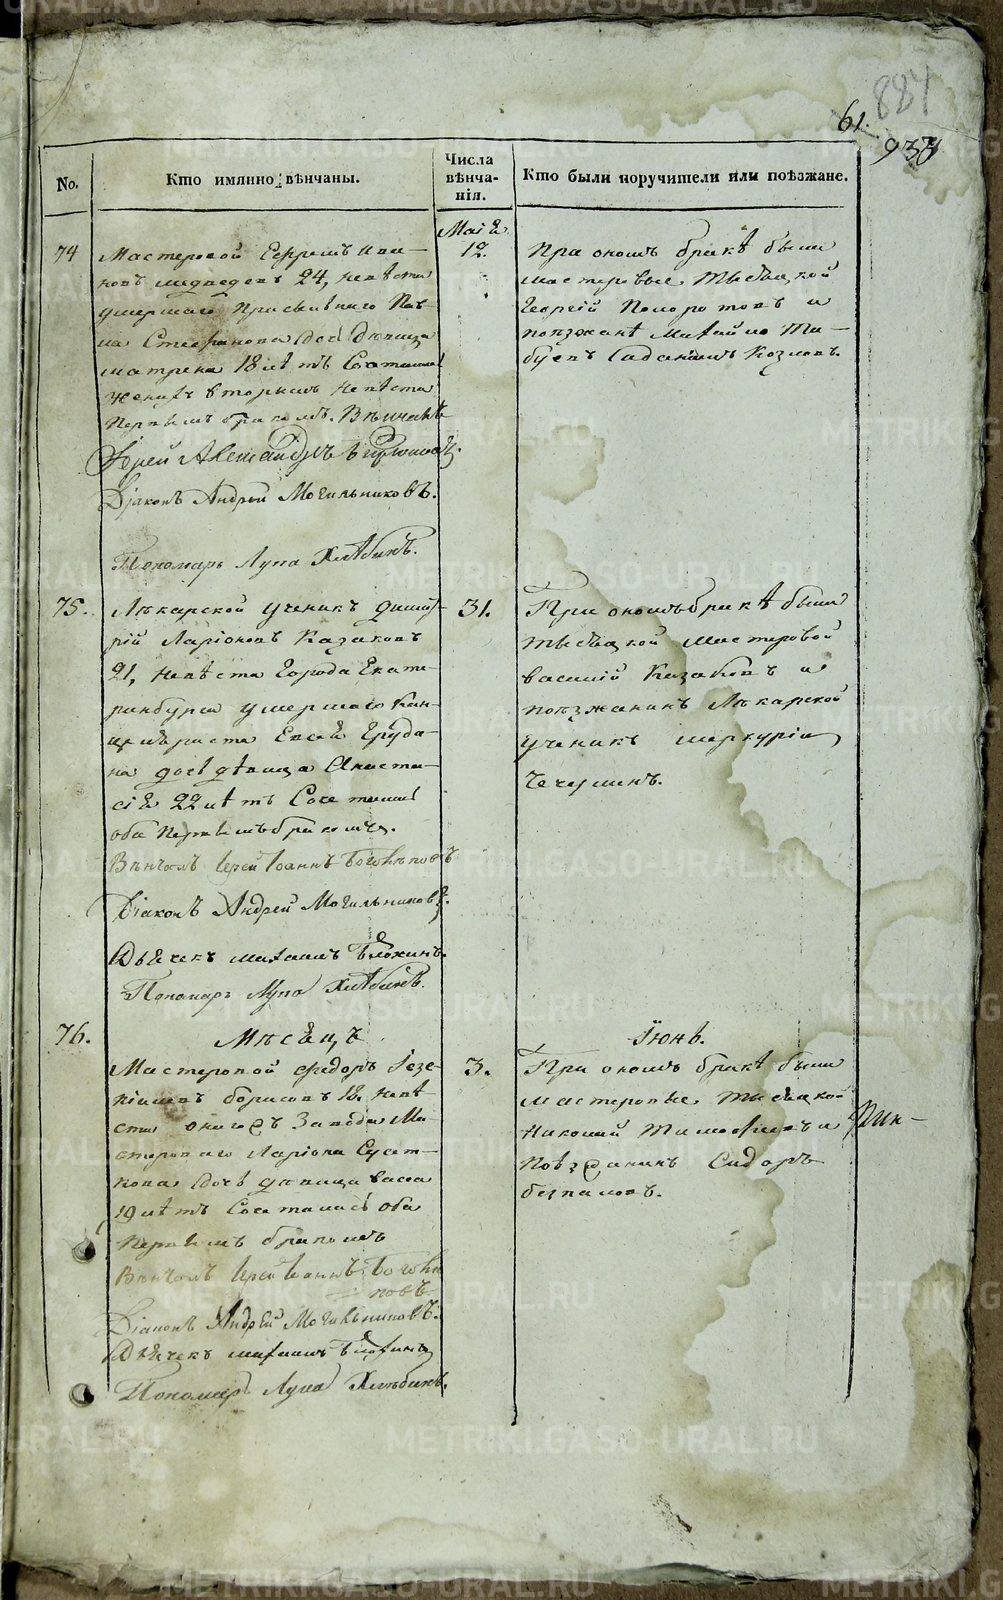 884
61.
933
No.
Кто имянно вѣнчаны.
Числа
вѣнча-
нія.
Кто были поручители или поѣзжане.
Маія
74
12.
Мастеровой Ефремъ Ива-
новъ Медведевъ 24, невѣста
умершаго Па-
ла Стефанова дочь девица
Матрена 18 лѣтъ Сочетались
женихъ вторымъ невѣста
Первымъ бракомъ. Вѣнчалъ
Іерей Александръ
Діаконъ Андрей Могильниковъ.
Пономарь Лупа Хлѣбинъ.
При ономъ бракѣ были
мастеровые Тысяцкой
Георгій Поморотовъ и
поѣзжанѣ Михайло
Козловъ.
75.
31.
Лѣкарской ученикъ Димит-
рій Ларіоновъ Казаковъ
21, невѣста Города Екате-
ринбурга умершаго Кан-
целяриста Евсея
дочь дѣвица Анаста-
сія 22 лѣтъ Сочетались
оба Первымъ бракомъ.
Вѣнчалъ Іерей Іоаннъ
Діаконъ Андрей Могильниковъ.
Дьячекъ Михаилъ
Пономарь Лупа Хлѣбинъ.
При ономъ бракѣ были
тысяцкой мастеровой
Василій Казаковъ и
поѣзжанинъ Лѣкарской
ученикъ Меркурій
76.
Мѣсяцъ
Іюнь.
3.
Мастеровой Федоръ Іезе-
кіилевъ Борисовъ 18. невѣ-
ста онагожъ Завода Ма-
стероваго Ларіона
дочь дѣвица Васса
19 лѣтъ Сочетались оба
Первымъ бракомъ
Вѣнчалъ Іерей Іоаннъ
Діаконъ Андрей Могильниковъ.
Дьячекъ Михаилъ
Пономарь Лупа Хлѣбинъ.
При ономъ бракѣ были
мастеровые Тысяцкой
Николай Тимофеевъ и
Поѣзжанинъ Сидоръ
METRIKI.GASO-URAL.RU